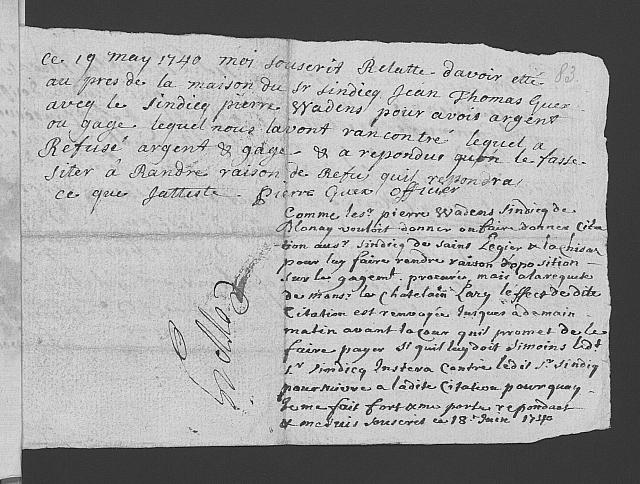 83
ce 19 may 1740 moi souscrit Relatte davoir etté
au pres de la maison du Sr Sindicq Jean Thomas Guex
aveq le Sindicq pierre Wadens pour avois argent
ou gage lequel nous lavont rancontré lequel a
Refusé argent & gage & a repondus quon le fasse
siter à Randre raison de Refu quil repondra
ce que Jatteste Pierre Guex officier
Comme le Sr pierre Wadens Sindicq de
Blonay vouloit donner ou faire donner Cita
tion au Sr Sindicq de Saint Legier & la Chiesa
pour luy faire rendre raison dopposition
sur le gagemt. procurié, mais a la requete
de Monsr le Chatelain leffect de dite
Citation est renvoyée Jusques à demain
matin avant la Cour quil promet de le
faire payer si quil luy doit simoins ledt
Sr Sindicq Contre ledit Sr Sindicq
poursuivre a ladite Citation pourquoy
Je me fait fort & me porte repondant
& me suis souscrit ce 18e Juin 1740